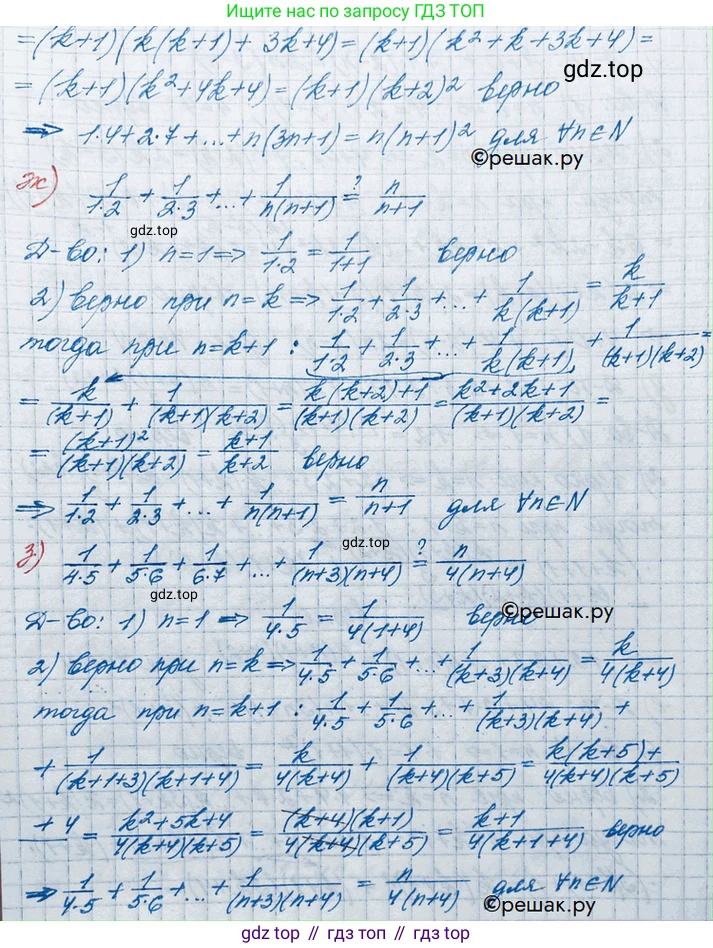 Ищите нас по запросу ГДЗ ТОП
=(k+1)(k(k+1)+ 3k+4)= (k+1)(k²+k+3k+4)=
= (k+1)(k²+4k+4)=(k+1)(k+2)² верно
gdz.top
=> 1·4+2·7+...+n(3n+1)=n(n+1)² для ∀n∈N
©решак.ру
ж) 1/(1·2) + 1/(2·3) +...+ 1/(n(n+1)) =? n/(n+1)
gdz.top
Д-во: 1) n=1=> 1/(1·2) = 1/(1+1) верно
2) верно при n=k => 1/(1·2) + 1/(2·3) +...+ 1/(k(k+1)) = k/(k+1)
тогда при n=k+1 : 1/(1·2) + 1/(2·3) +...+ 1/(k(k+1)) + 1/((k+1)(k+2)) =
= k/(k+1) + 1/((k+1)(k+2)) = (k(k+2)+1)/((k+1)(k+2)) = (k²+2k+1)/((k+1)(k+2)) =
= (k+1)²/((k+1)(k+2)) = (k+1)/(k+2) верно
=> 1/(1·2) + 1/(2·3) +...+ 1/(n(n+1)) = n/(n+1) для ∀n∈N
gdz.top
з) 1/(4·5) + 1/(5·6) + 1/(6·7) +...+ 1/((n+3)(n+4)) =? n/(4(n+4))
gdz.top
Д-во: 1) n=1 => 1/(4·5) = 1/(4(1+4)) верно
©решак.ру
2) верно при n=k=> 1/(4·5) + 1/(5·6) +...+ 1/((k+3)(k+4)) = k/(4(k+4))
тогда при n=k+1 : 1/(4·5) + 1/(5·6) +...+ 1/((k+3)(k+4)) +
+ 1/((k+1+3)(k+1+4)) = k/(4(k+4)) + 1/((k+4)(k+5)) = (k(k+5)+)/(4(k+4)(k+5))
+4 = (k²+5k+4)/(4(k+4)(k+5)) = ((k+4)(k+1))/(4(k+4)(k+5)) = (k+1)/(4(k+1+4)) верно
=> 1/(4·5) + 1/(5·6) +...+ 1/((n+3)(n+4)) = n/(4(n+4)) для ∀n∈N
©решак.ру
gdz.top // гдз.топ // гдз.top